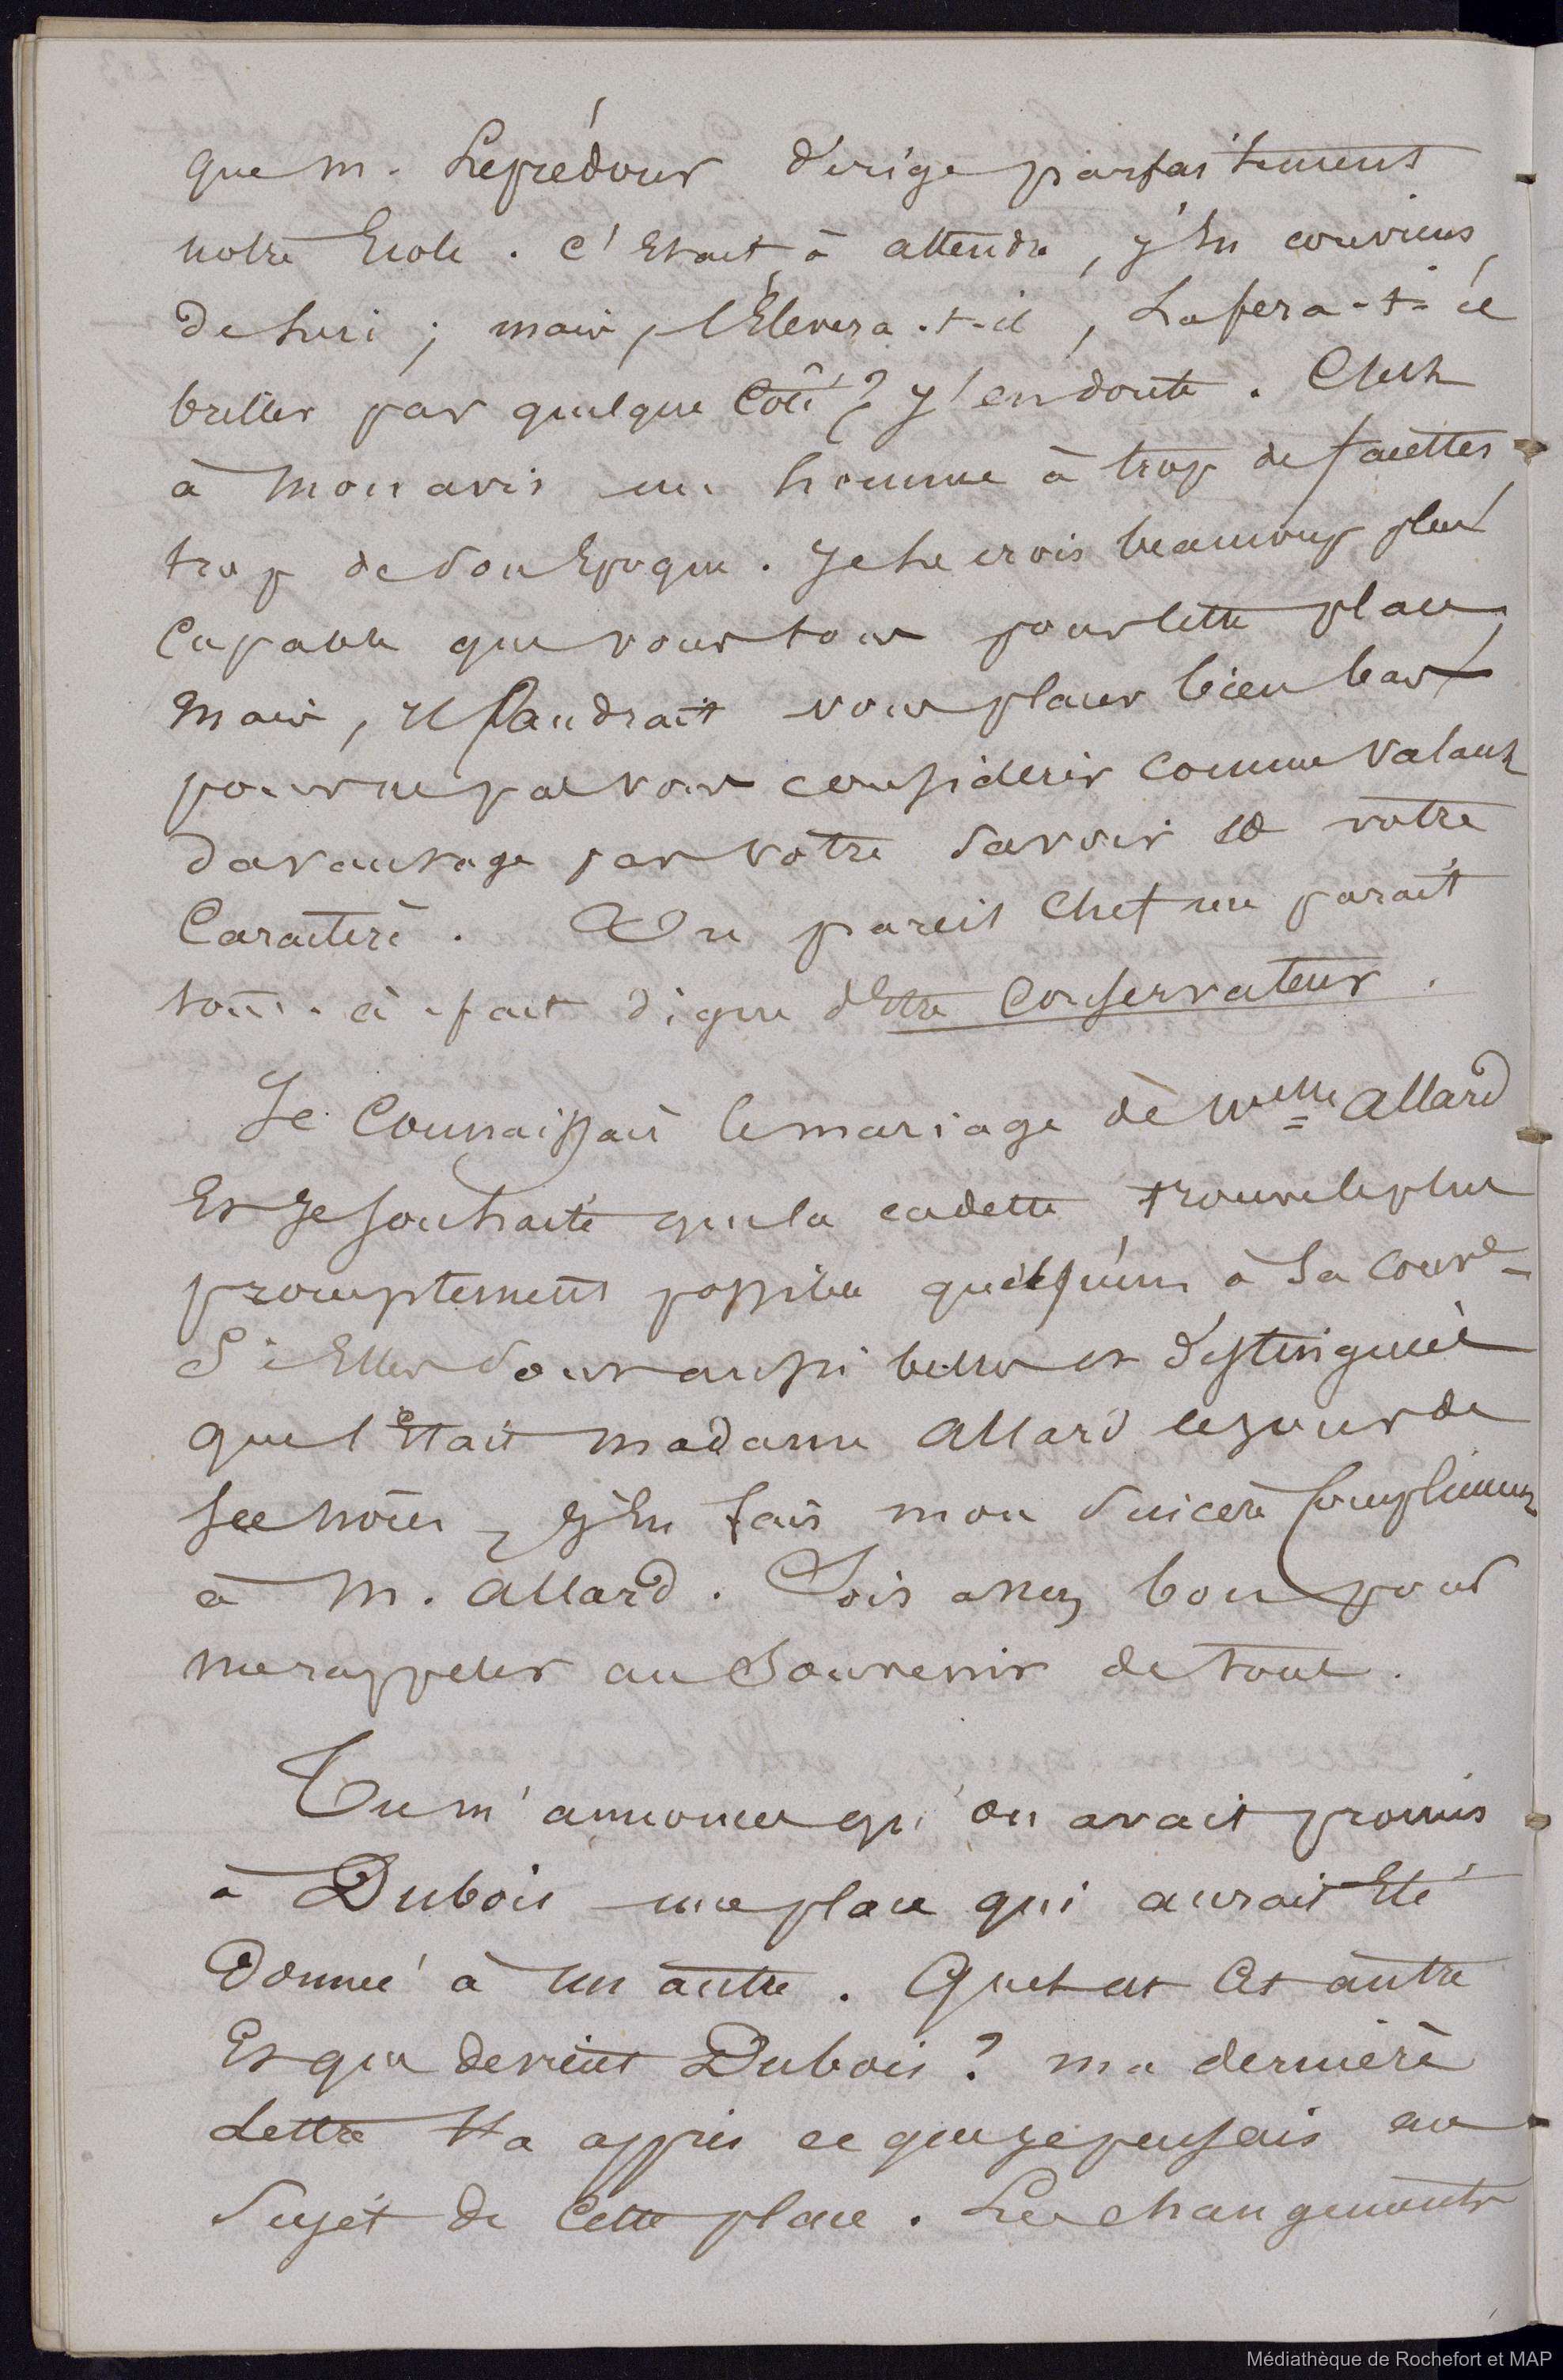 que M. Leprédour dirige parfaitement
notre Ecole. C'était à attendre, j'en conviens,
de lui ; mais, l'Elevera-t-il, La fera-t-il
briller par quelque Côté ? j'en doute. C'est
à mon avis un homme à trop de facettes,
trop de son Epoque. Je le crois beaucoup plus
Capable que vous tous pour cette place,
mais, il faudrait vous placer bien bas
pour ne pas vous considérer comme valant
davantage par votre savoir et votre
Caractère. Un pareil Chef me parait
tout-à-fait digne d'Etre Conservateur.
Je Connaissais le mariage de Melle Allard
Et je souhaite que la cadette trouve le plus
promptement possible quelqu'un à sa conve
Si Elles sont aussi belles et distinguées
que l'Etait madame Allard le jour de
ses noces, j'En fais mon sincère Compliment
à M. Allard. Sois assez bon pour
me rappeler au Souvenir de tous.
Tu m'annonces qu'on avait promis
à Dubois une place qui aurait Eté
Donnée à un autre. Quel est Cet autre
Et que devient Dubois ? ma dernière
Lettre t'a appris ce que je pensais au
Sujet de Cette place. Les changements
Médiathèque de Rochefort et MAP